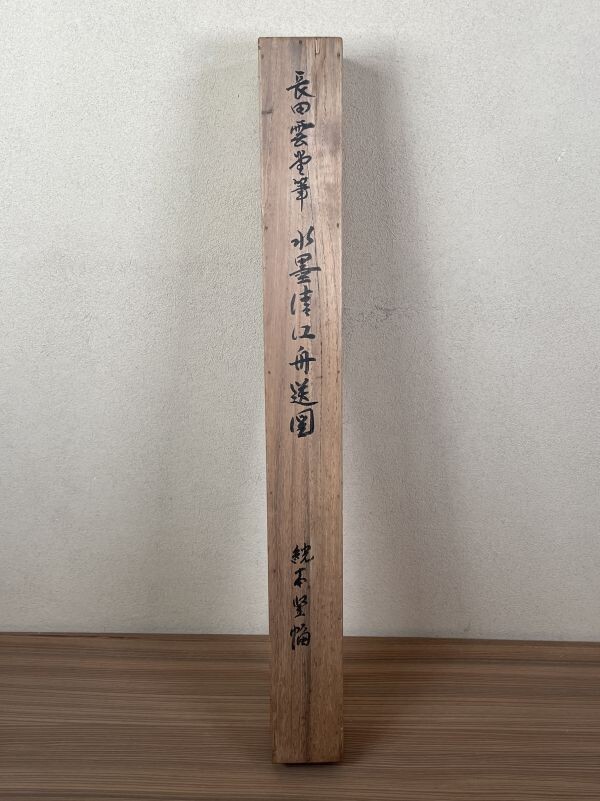 長田雲堂筆 水墨清江舟送図
絖本竪幅